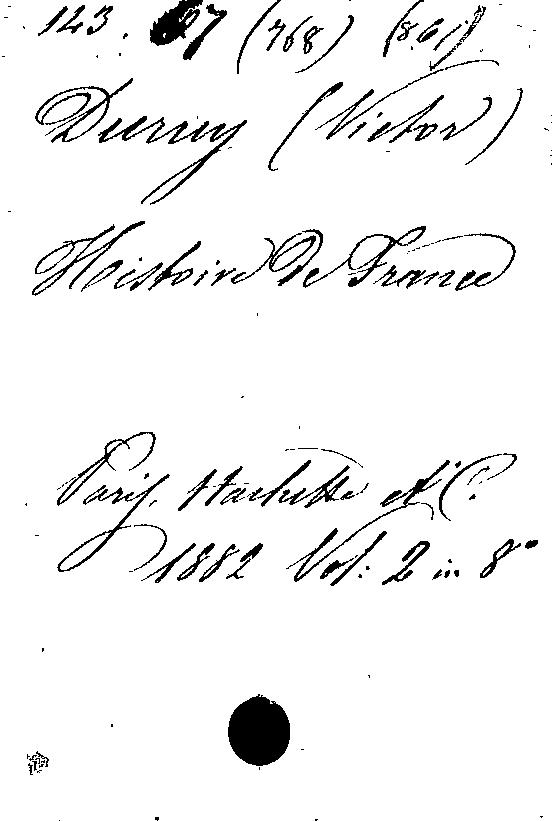 123. 97 (768) (861)
Duruy (Victor)
Histoire de France
Paris, Hachette et C.
1882 Vol: 2 in 8°